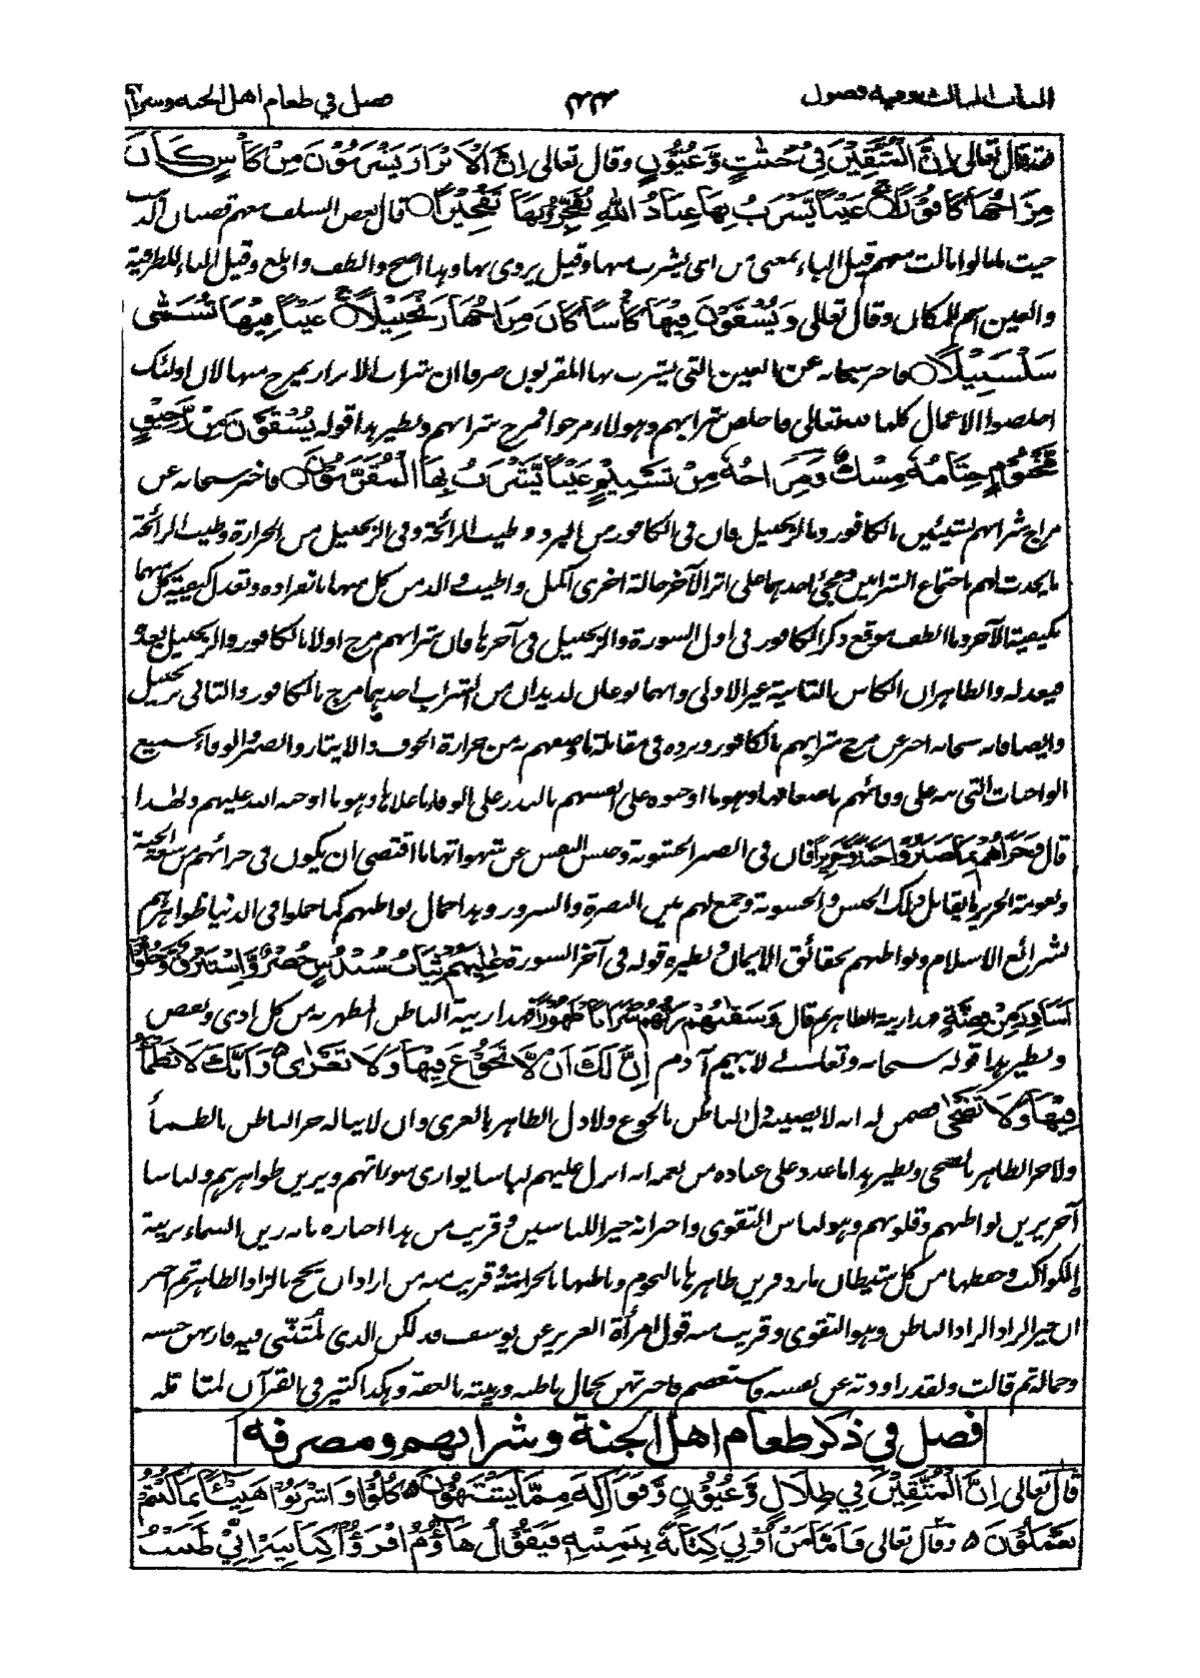 الباب الثالث وفيه فصول ٢٢٣ فصل في طعام اهل الجنة وشرابهم
فقد قال تعالى إِنَّ الْمُتَّقِيْنَ فِيْ جَنّٰتٍ وَّعُيُوْنٍ وقال تعالى إِنَّ الْاَبْرَارَ يَشْرَبُوْنَ مِنْ كَأْسٍ كَانَ
مِزَاجُهَا كَافُوْرًا عَيْنًا يَّشْرَبُ بِهَا عِبَادُ اللهِ يُفَجِّرُوْنَهَا تَفْجِيْرًا قال بعض السلف معهم قضبان الذهب
حيث مالوا مالت معهم قيل الباء بمعنى من اى يشرب منها وقيل يروى بها وهذا اصح والطف وابلغ وقيل الباء للظرفية
والعين اسم للمكان وقال تعالى وَيُسْقَوْنَ فِيْهَا كَأْسًا كَانَ مِزَاجُهَا زَنْجَبِيْلًا عَيْنًا فِيْهَا تُسَمّٰى
سَلْسَبِيْلًا فاخبر سبحانه عن العين التى يشرب بها المقربون صرفا ان شراب الابرار يمزج منها لان اولئك
اخلصوا الاعمال كلها لله تعالى فاخلص شرابهم وهولاء مزجوا فمزج شرابهم ونظير هذا قوله يُسْقَوْنَ مِنْ رَّحِيْقٍ
مَّخْتُوْمٍ خِتَامُهٗ مِسْكٌ وَمِزَاجُهٗ مِنْ تَسْنِيْمٍ عَيْنًا يَّشْرَبُ بِهَا الْمُقَرَّبُوْنَ فاخبر سبحانه عن
مزاج شرابهم بشيئين بالكافور وبالزنجبيل فان فى الكافور من البرد وطيب الرائحة وفى الزنجبيل من الحرارة وطيب الرائحة
ما يحدث لهم باجتماع الشرابين ومجئ احدهما على اثر الآخر حالة اخرى اكمل واطيب والذ من كل منهما بانفراده وتعدل كيفية كل منهما
بكيفية الآخر وما الطف موقع ذكر الكافور فى اول السورة والزنجبيل فى آخرها فان شرابهم مزج اولا بالكافور والزنجبيل بعده
فيعدله والظاهر ان الكاس الثانية غير الاولى وانهما نوعان لذيذان من الشراب احدهما مزج بالكافور والثانى بزنجبيل
وايضا فانه سبحانه اخبر عن مزج شرابهم بالكافور وبرده فى مقابلة ما وصفهم به من حرارة الخوف والايثار والصبر والوفاء بجميع
الواجبات التى نبه على وفائهم باضعفها وهو ما اوجبوه على انفسهم بالنذر على الوفاء باعلاها وهو ما اوجبه الله عليهم ولهذا
قال وَجَزَاهُمْ بِمَا صَبَرُوْا جَنَّةً وَّحَرِيْرًا فان فى الصبر الخشونة وحبس النفس عن شهواتها ما اقتضى ان يكون فى جزائهم من سعة الجنة
ونعومة الحرير ما يقابل ذلك الحبس والخشونة وجمع لهم بين النضرة والسرور وهذا جمال بواطنهم كما جملوا فى الدنيا ظواهرهم
بشرائع الاسلام وبواطنهم بحقائق الايمان ونظيره قوله فى آخر السورة عٰلِيَهُمْ ثِيَابُ سُنْدُسٍ خُضْرٌ وَّاِسْتَبْرَقٌ وَّحُلُّوْا
اَسَاوِرَ مِنْ فِضَّةٍ فهذا زينة الظاهر ثم قال وَسَقٰهُمْ رَبُّهُمْ شَرَابًا طَهُوْرًا فهذا زينة الباطن المطهر من كل اذى ونقص
ونظير هذا قوله سبحانه وتعالى لابيهم آدم اِنَّ لَكَ اَنْ لَّا تَجُوْعَ فِيْهَا وَلَا تَعْرٰى وَاَنَّكَ لَا تَظْمَأُ
فِيْهَا وَلَا تَضْحٰى فضمن له انه لا يصيبه ذل الباطن بالجوع ولا ذل الظاهر بالعرى وان لا يناله حر الباطن بالظمأ
ولا حر الظاهر بالضحى ونظير هذا ما عدد على عباده من نعمه انه انزل عليهم لباسا يوارى سوءاتهم ويزين ظواهرهم ولباسا
آخر يزين بواطنهم وقلوبهم وهو لباس التقوى واخبر انه خير اللباسين وقريب من هذا اخباره بانه زين السماء بزينة
الكواكب وحفظها من كل شيطان مارد فزين ظاهرها بالنجوم وباطنها بالحراسة وقريب منه من اراد ان يحج بالزاد الظاهر ثم اخبر
ان خير الزاد الزاد الباطن وهو التقوى وقريب منه قول امرأة العزيز عن يوسف فذلكن الذى لُمْتُنَّنِى فيه فارتهن حسنه
وجماله ثم قالت ولقد راودته عن نفسه فاستعصم فاخبرتهن بجمال باطنه وزينته بالعفة وهكذا كثير فى القرآن لمن تامله
فصل في ذكر طعام اهل الجنة وشرابهم ومصرفه
قال تعالى اِنَّ الْمُتَّقِيْنَ فِي ظِلَالٍ وَّعُيُوْنٍ وَّفَوَاكِهَ مِمَّا يَشْتَهُوْنَ كُلُوْا وَاشْرَبُوْا هَنِيْئًا بِمَا كُنْتُمْ
تَعْمَلُوْنَ وقال تعالى فَاَمَّا مَنْ اُوْتِيَ كِتَابَهٗ بِيَمِيْنِهٖ فَيَقُوْلُ هَاؤُمُ اقْرَؤُا كِتَابِيَهْ اِنِّيْ ظَنَنْتُ